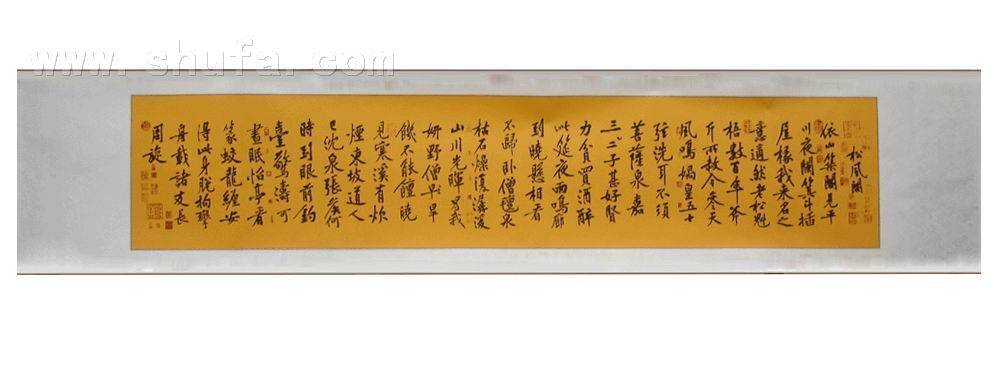 www.shufa.com
松風閣
依山築閣見平
川夜闌箕斗插
屋椽我來名之
意適然老松魁
梧數百年斧
斤所赦今參天
風鳴媧皇五十
弦洗耳不須
菩薩泉嘉
三二子甚好賢
力貧買酒醉
此筵夜雨鳴廊
到曉懸相看
不歸臥僧氈泉
枯石燥復潺湲
山川光暉為我
妍野僧早旱
飢不能饘曉
見寒溪有炊
煙東坡道人
已沈泉張侯何
時到眼前釣
臺驚濤可
晝眠怡亭看
篆蛟龍纏安
得此身脫拘攣
舟載諸友長
周旋